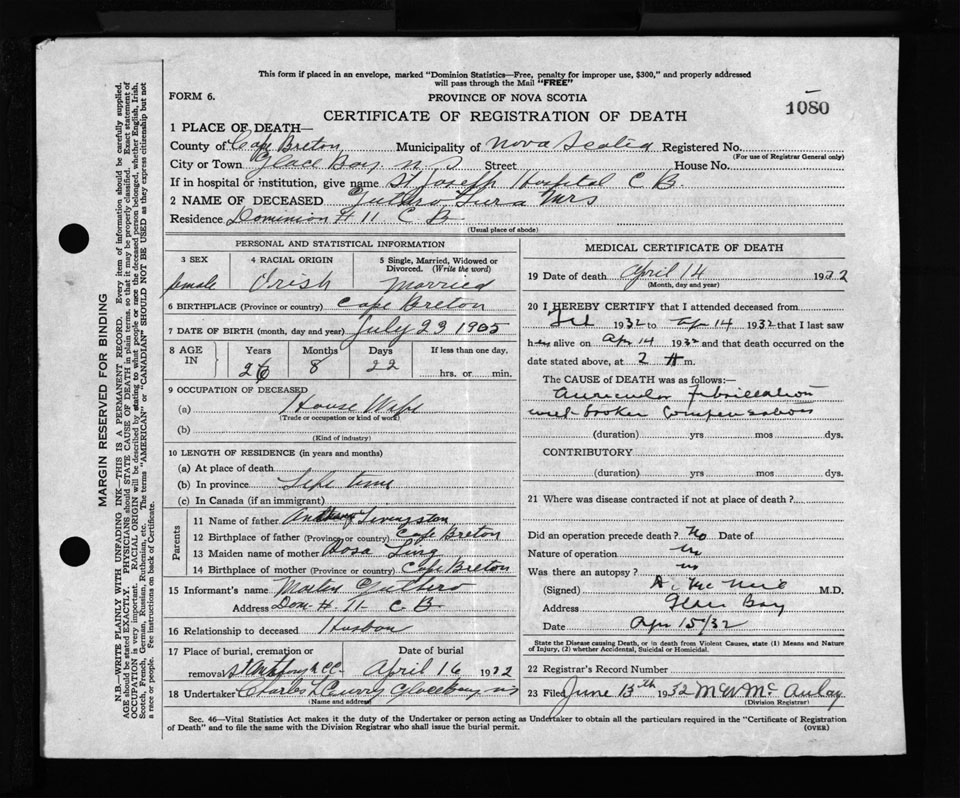 This form if placed in an envelope, marked "Dominion Statistics—Free, penalty for improper use, $300," and properly addressed
will pass through the Mail "FREE"
FORM 6. PROVINCE OF NOVA SCOTIA
CERTIFICATE OF REGISTRATION OF DEATH 1080
1 PLACE OF DEATH—
County of Cape Breton Municipality of Nova Scotia Registered No.
(For use of Registrar General only)
City or Town Glace Bay N S Street House No.
If in hospital or institution, give name St Joseph Hospital C B.
2 NAME OF DECEASED Mrs
Residence Dominion # 11 C B
(Usual place of abode)
PERSONAL AND STATISTICAL INFORMATION
3 SEX 4 RACIAL ORIGIN 5 Single, Married, Widowed or
Divorced. (Write the word)
female Irish Married
6 BIRTHPLACE (Province or country) Cape Breton
7 DATE OF BIRTH (month, day and year) July 23 1905
8 AGE IN Years Months Days If less than one day,
26 8 22 hrs. or min.
9 OCCUPATION OF DECEASED
(a) House Wife
(Trade or occupation or kind of work)
(b)
(Kind of industry)
10 LENGTH OF RESIDENCE (in years and months)
(a) At place of death
(b) In province Life time
(c) In Canada (if an immigrant)
Parents
11 Name of father Livingston
12 Birthplace of father (Province or country) Cape Breton
13 Maiden name of mother Rosa
14 Birthplace of mother (Province or country) Cape Breton
15 Informant's name
Address Dom # 11 C B
16 Relationship to deceased Husbon
17 Place of burial, cremation or Date of burial
removal April 16 1932
18 Undertaker Charles Glace Bay NS
(Name and address)
MEDICAL CERTIFICATE OF DEATH
19 Date of death April 14 1932
(Month, day and year)
20 I HEREBY CERTIFY that I attended deceased from
1932 to Apr 14 1932 that I last saw
h alive on Apr 14 1932 and that death occurred on the
date stated above, at 2 A m.
The CAUSE of DEATH was as follows:—
Auricular Fibrillation
with broken compensation
(duration) yrs mos dys.
CONTRIBUTORY
(duration) yrs mos dys.
21 Where was disease contracted if not at place of death?
Did an operation precede death? No Date of
Nature of operation
Was there an autopsy? no
(Signed) M.D.
Address Glace Bay
Date Apr 15/32
State the Disease causing Death, or in death from Violent Causes, state (1) Means and Nature
of Injury, (2) whether Accidental, Suicidal or Homicidal.
22 Registrar's Record Number
23 Filed June 13th 1932 M W McAulay
(Division Registrar)
Sec. 46—Vital Statistics Act makes it the duty of the Undertaker or person acting as Undertaker to obtain all the particulars required in the "Certificate of Registration
of Death" and to file the same with the Division Registrar who shall issue the burial permit. (OVER)
MARGIN RESERVED FOR BINDING
N.B.—WRITE PLAINLY WITH UNFADING INK—THIS IS A PERMANENT RECORD. Every item of information should be carefully supplied.
AGE should be stated EXACTLY. PHYSICIANS should STATE CAUSE OF DEATH in plain terms, so that it may be properly classified. Exact statement of
OCCUPATION is very important. RACIAL ORIGIN will be described by stating to what people or race the deceased person belonged, whether English, Irish,
Scotch, French, German, Russian, Ruthenian, etc. The terms "AMERICAN" or "CANADIAN" SHOULD NOT BE USED as they express citizenship but not
a race or people. Fee instructions on back of Certificate.